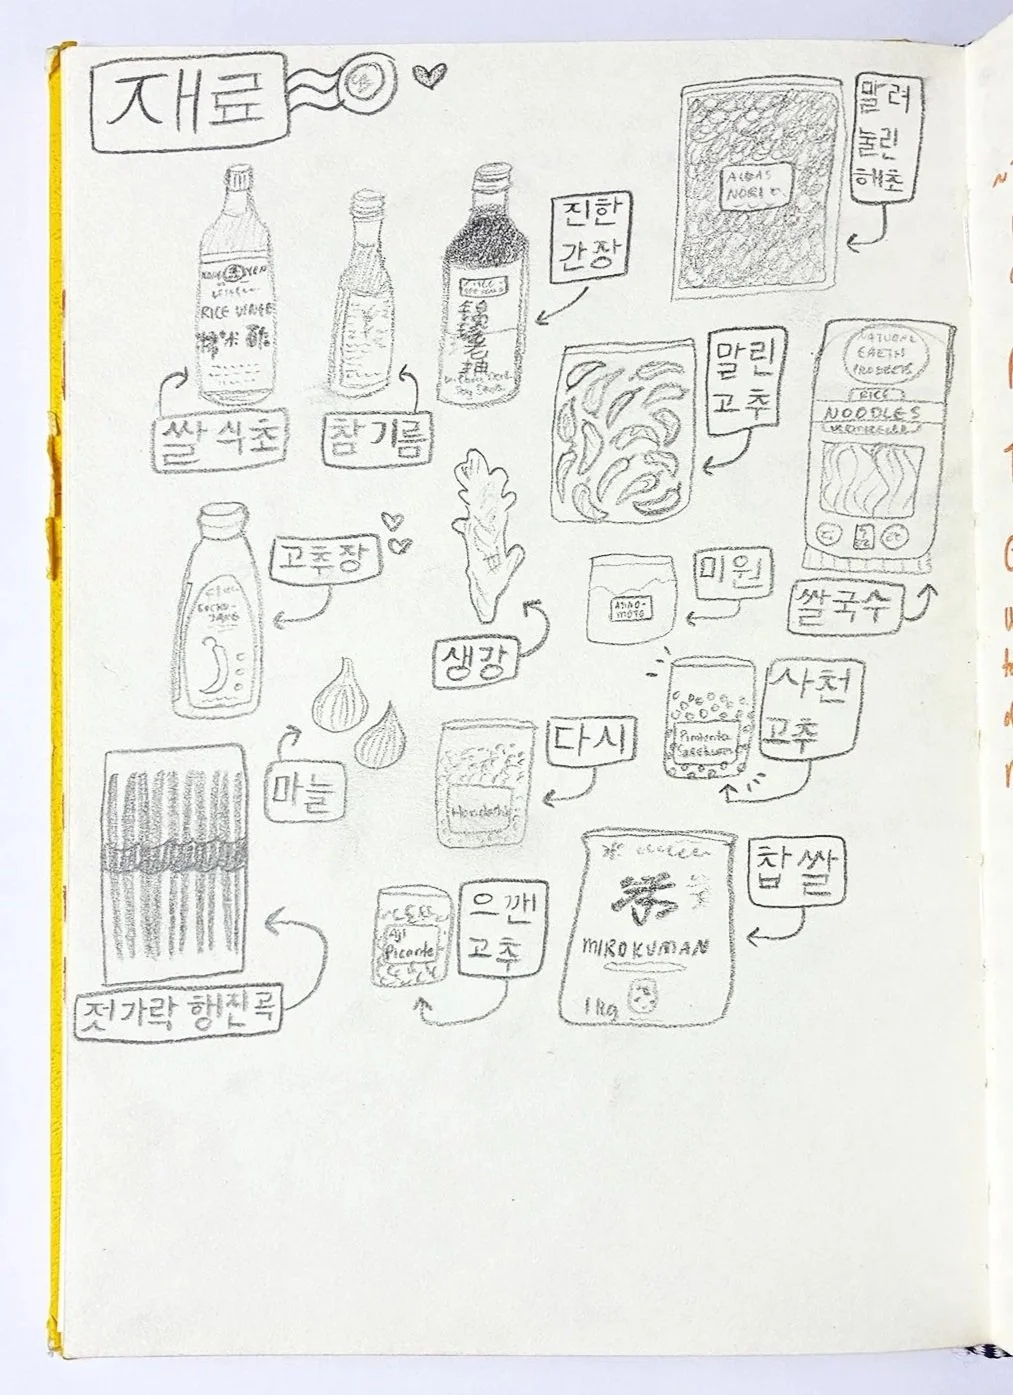 재료
말려
눌린
해초
ALGAS
NORI
진한
간장
RICE
쌀 식초
참기름
말린
고추
NATURAL
EARTH
PRODUCTS
RICE
NOODLES
고추장
GOCHU-
JANG
생강
미원
AJINO-
MOTO
쌀국수
사천
고추
Pimienta
마늘
다시
Hondashi
으깬
고추
Aji
Picante
찹쌀
MIROKUMAN
1 kg
젓가락 행진곡